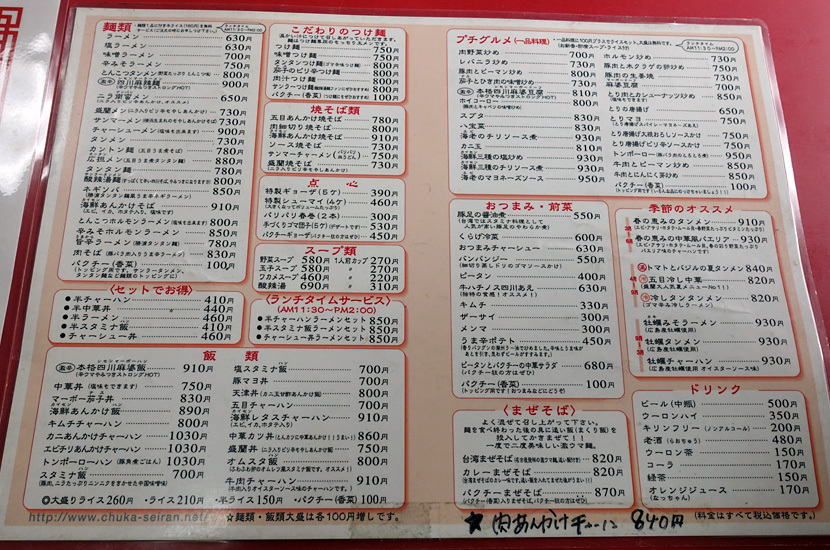 麺類
ランチタイム
AM11:30~PM2:00
ラーメン 630円
塩ラーメン 630円
味噌ラーメン 700円
辛みそラーメン 750円
とんこつタンメン 800円
本格四川麻辣麺 900円
ニラ南蛮メン 650円
盛蘭麺 750円
サンマーメン 780円
チャーシューメン 900円
タンメン 730円
カントン麺 780円
広担メン 880円
タンタン麺 780円
酸辣湯麺 800円
ネギソバ 850円
海鮮あんかけそば 910円
(エビ、イカ、ホタテ入り、塩味です)
とんこつホルモンラーメン 800円
辛みそホルモンラーメン 850円
旨辛ラーメン 780円
肉そば 850円
パクチー(香菜) 100円
こだわりのつけ麺
つけ麺 750円
味噌つけ麺 750円
タンタンつけ麺 750円
茄子のピリ辛つけ麺 800円
肉汁つけ麺 800円
サンラーつけ麺 800円
パクチー(香菜) 100円
焼そば類
五目あんかけ焼そば 780円
肉細切り焼そば 800円
海鮮あんかけ焼そば 910円
ソース焼そば 730円
サンマーチャーメン 750円
盛蘭焼そば 730円
点心
特製ギョーザ(5ケ) 390円
特製シューマイ(4ケ) 460円
パリパリ春巻(2本) 300円
手づくりゴマ団子(5ケ) 530円
パクチーギョーザ 450円
スープ類
野菜スープ 580円 1人前カップ 270円
玉子スープ 580円 〃 220円
ワカメスープ 460円 〃 220円
酸辣湯 690円 〃 310円
<セットでお得>
●半チャーハン 410円
●半中華丼 440円
●半ラーメン 410円
●半スタミナ飯 460円
●チャーシュー丼 460円
<ランチタイムサービス>
(AM11:30~PM2:00)
●半チャーハンラーメンセット 850円
●半スタミナ飯ラーメンセット 850円
●チャーシュー丼ラーメンセット 850円
飯類
本格四川麻婆飯 910円
中華丼 750円
マーボー茄子丼 830円
海鮮あんかけ飯 890円
キムチチャーハン 800円
カニあんかけチャーハン 1030円
エビチリあんかけチャーハン 1030円
トンポーローハン 1030円
スタミナ飯 700円
塩スタミナ飯 700円
豚マヨ丼 700円
天津丼 800円
五目チャーハン 700円
海鮮レタスチャーハン 910円
(エビ、イカ、ホタテ入り)
中華カツ丼 860円
盛蘭丼 750円
オムスタ飯 800円
牛肉チャーハン 910円
◎大盛りライス 260円 ・ライス 210円 ・半ライス 150円 ・パクチー(香菜) 100円
http://www.chuka-seiran.net/
☆麺類・飯類大盛は各100円増しです。
プチグルメ(一品料理)
ランチタイム
AM11:30~PM2:00
肉野菜炒め 700円
レバニラ炒め 730円
豚肉とピーマン炒め 800円
茄子とひき肉の味噌炒め 740円
本格四川麻婆豆腐 810円
ホイコーロー 800円
スブタ 830円
八宝菜 830円
海老のチリソース煮 930円
カニ玉 810円
海鮮三種の塩炒め 930円
海鮮三種のチリソース煮 930円
海老のマヨネーズソース 950円
ホルモン炒め 730円
豚肉とキクラゲの卵炒め 750円
豚肉の生姜焼 730円
麻婆豆腐 700円
とり肉とカシューナッツ炒め 850円
とり唐揚げ 650円
とりマヨ 750円
とり唐揚げ大根おろしソースかけ 750円
とり唐揚げピリ辛ソースかけ 750円
トンポーロー 950円
牛肉とピーマン炒め 850円
牛肉とにんにく芽炒め 850円
パクチー(香菜) 100円
おつまみ・前菜
豚足の醤油煮 550円
くらげ冷菜 600円
おつまみチャーシュー 630円
バンバンジー 530円
ピータン 400円
牛ハチノス四川あえ 630円
キムチ 330円
ザーサイ 300円
メンマ 300円
うま辛ポテト 450円
ピータンとパクチーの中華サラダ 680円
パクチー(香菜) 100円
季節のオススメ
春の恵みのタンメン 910円
春の恵みの中華風パエリア 930円
トマトとバジルの夏タンメン 840円
五目冷し中華 820円
冷しタンタンメン 820円
牡蠣みそラーメン 930円
(広島産牡蠣使用)
牡蠣タンメン 930円
(広島産牡蠣使用)
牡蠣チャーハン 930円
(広島産牡蠣使用 オイスターソース味)
<まぜそば>
よく混ぜて召し上がって下さい。
麺を食べ終わった後の具に追い飯(まくり飯)を
投入してかきまぜて!!
一度で二度美味しい激ウマ麺。
台湾まぜそば 820円
カレーまぜそば 820円
パクチーまぜそば 870円
ドリンク
ビール(中瓶) 500円
ウーロンハイ 350円
キリンフリー(ノンアルコール) 200円
老酒 480円
ウーロン茶 150円
コーラ 170円
緑茶 150円
オレンジジュース 170円
(なっちゃん)
(料金はすべて税込価格です。)
★肉あんかけチャーハン 840円